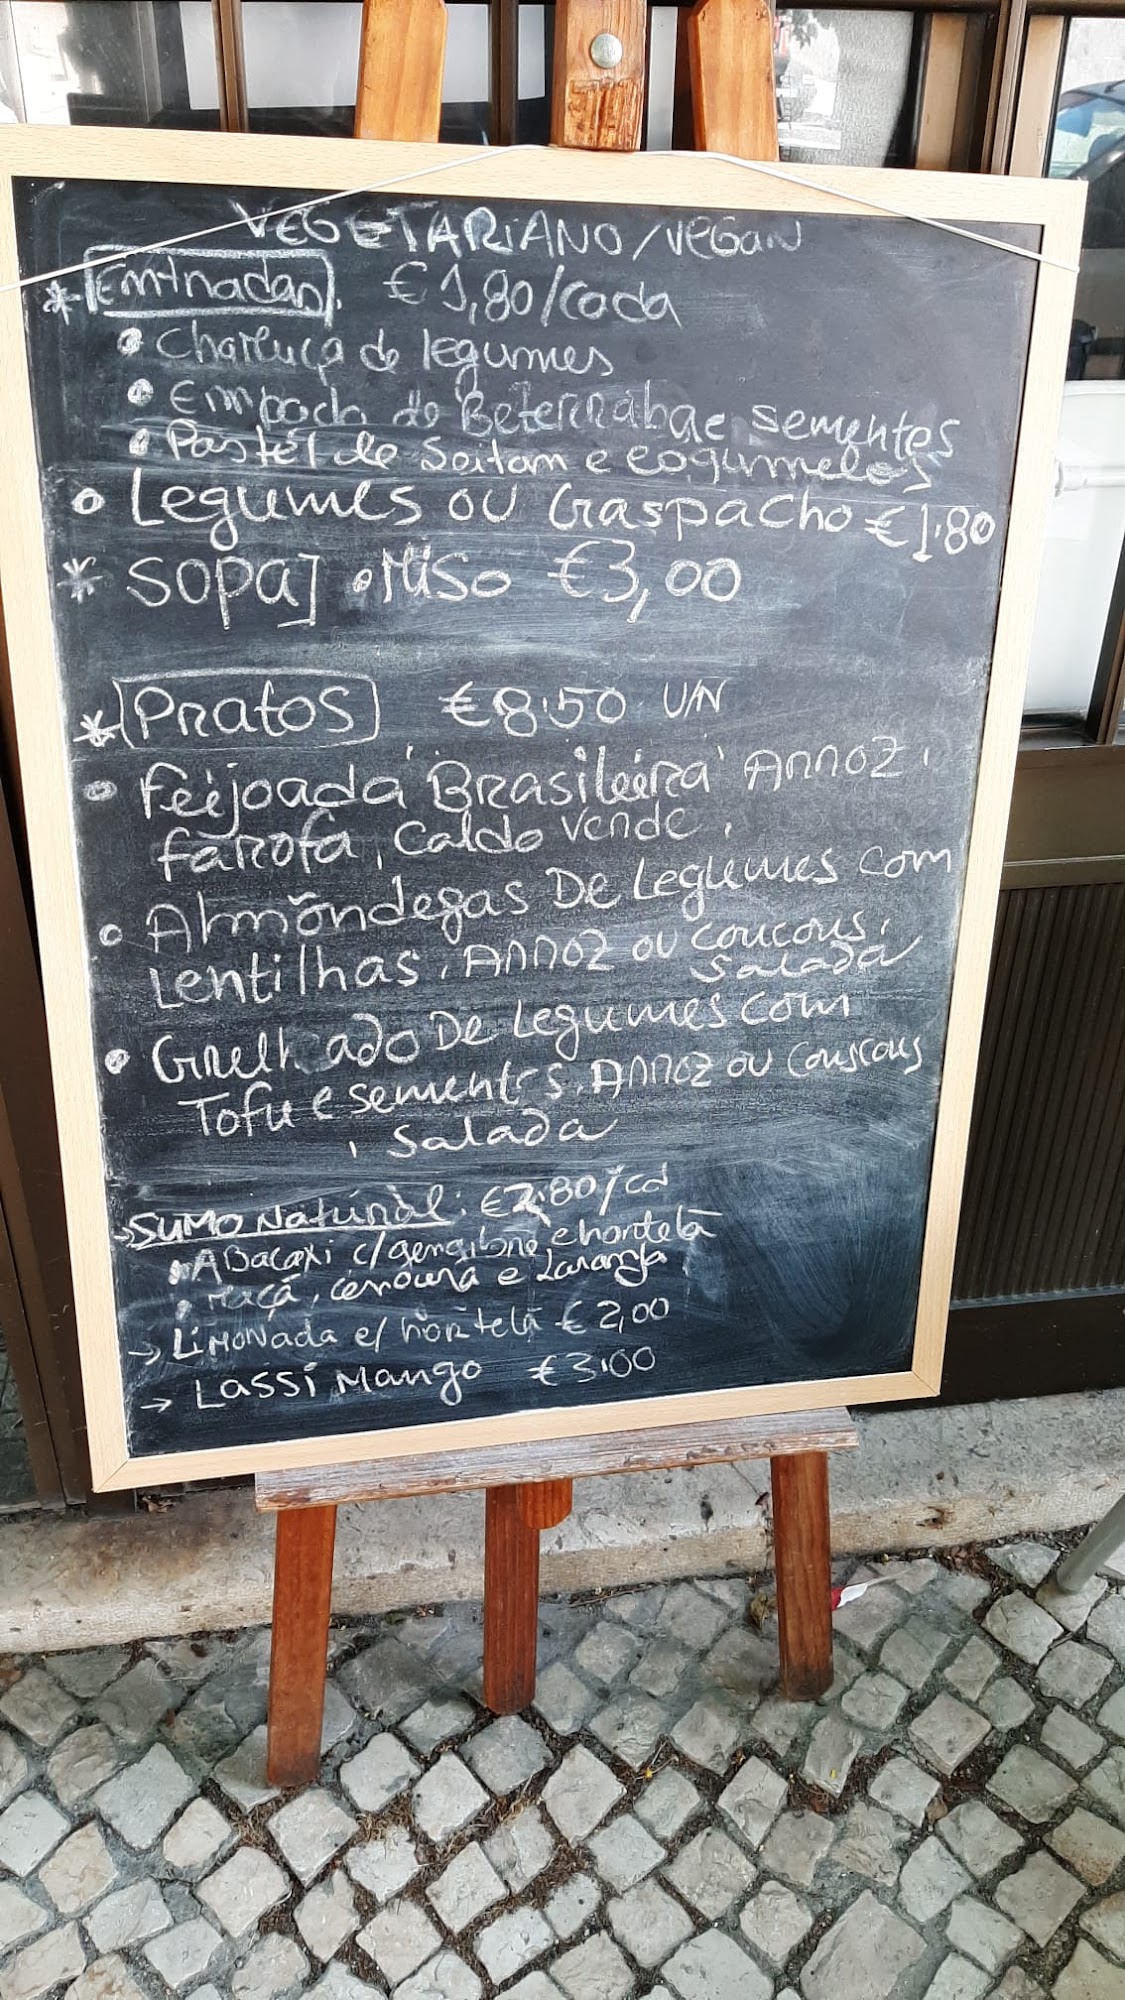 VEGETARIANO/VEGAN
* Entradas. € 1,80/cada
• Chamuça de legumes
• Empada de Beterraba e sementes
• Pastél de Seitam e cogumelos
• Legumes ou Gaspacho € 1.80
* SOPAS • Miso € 3,00
* Pratos € 8.50 U/N
• Feijoada 'Brasileira' Arroz,
farofa, Caldo verde,
• Almôndegas De Legumes com
Lentilhas, Arroz ou coucous,
salada
• Grelhado De Legumes com
Tofu e sementes, Arroz ou Couscous
, salada
→ SUMO Natural: € 2.80/cd
• ABacaxi c/gengibre e hortelã
• Maçã, cenoura e Laranja
→ LiMONada c/ hortelã € 2,00
→ Lassi Mango € 3.00